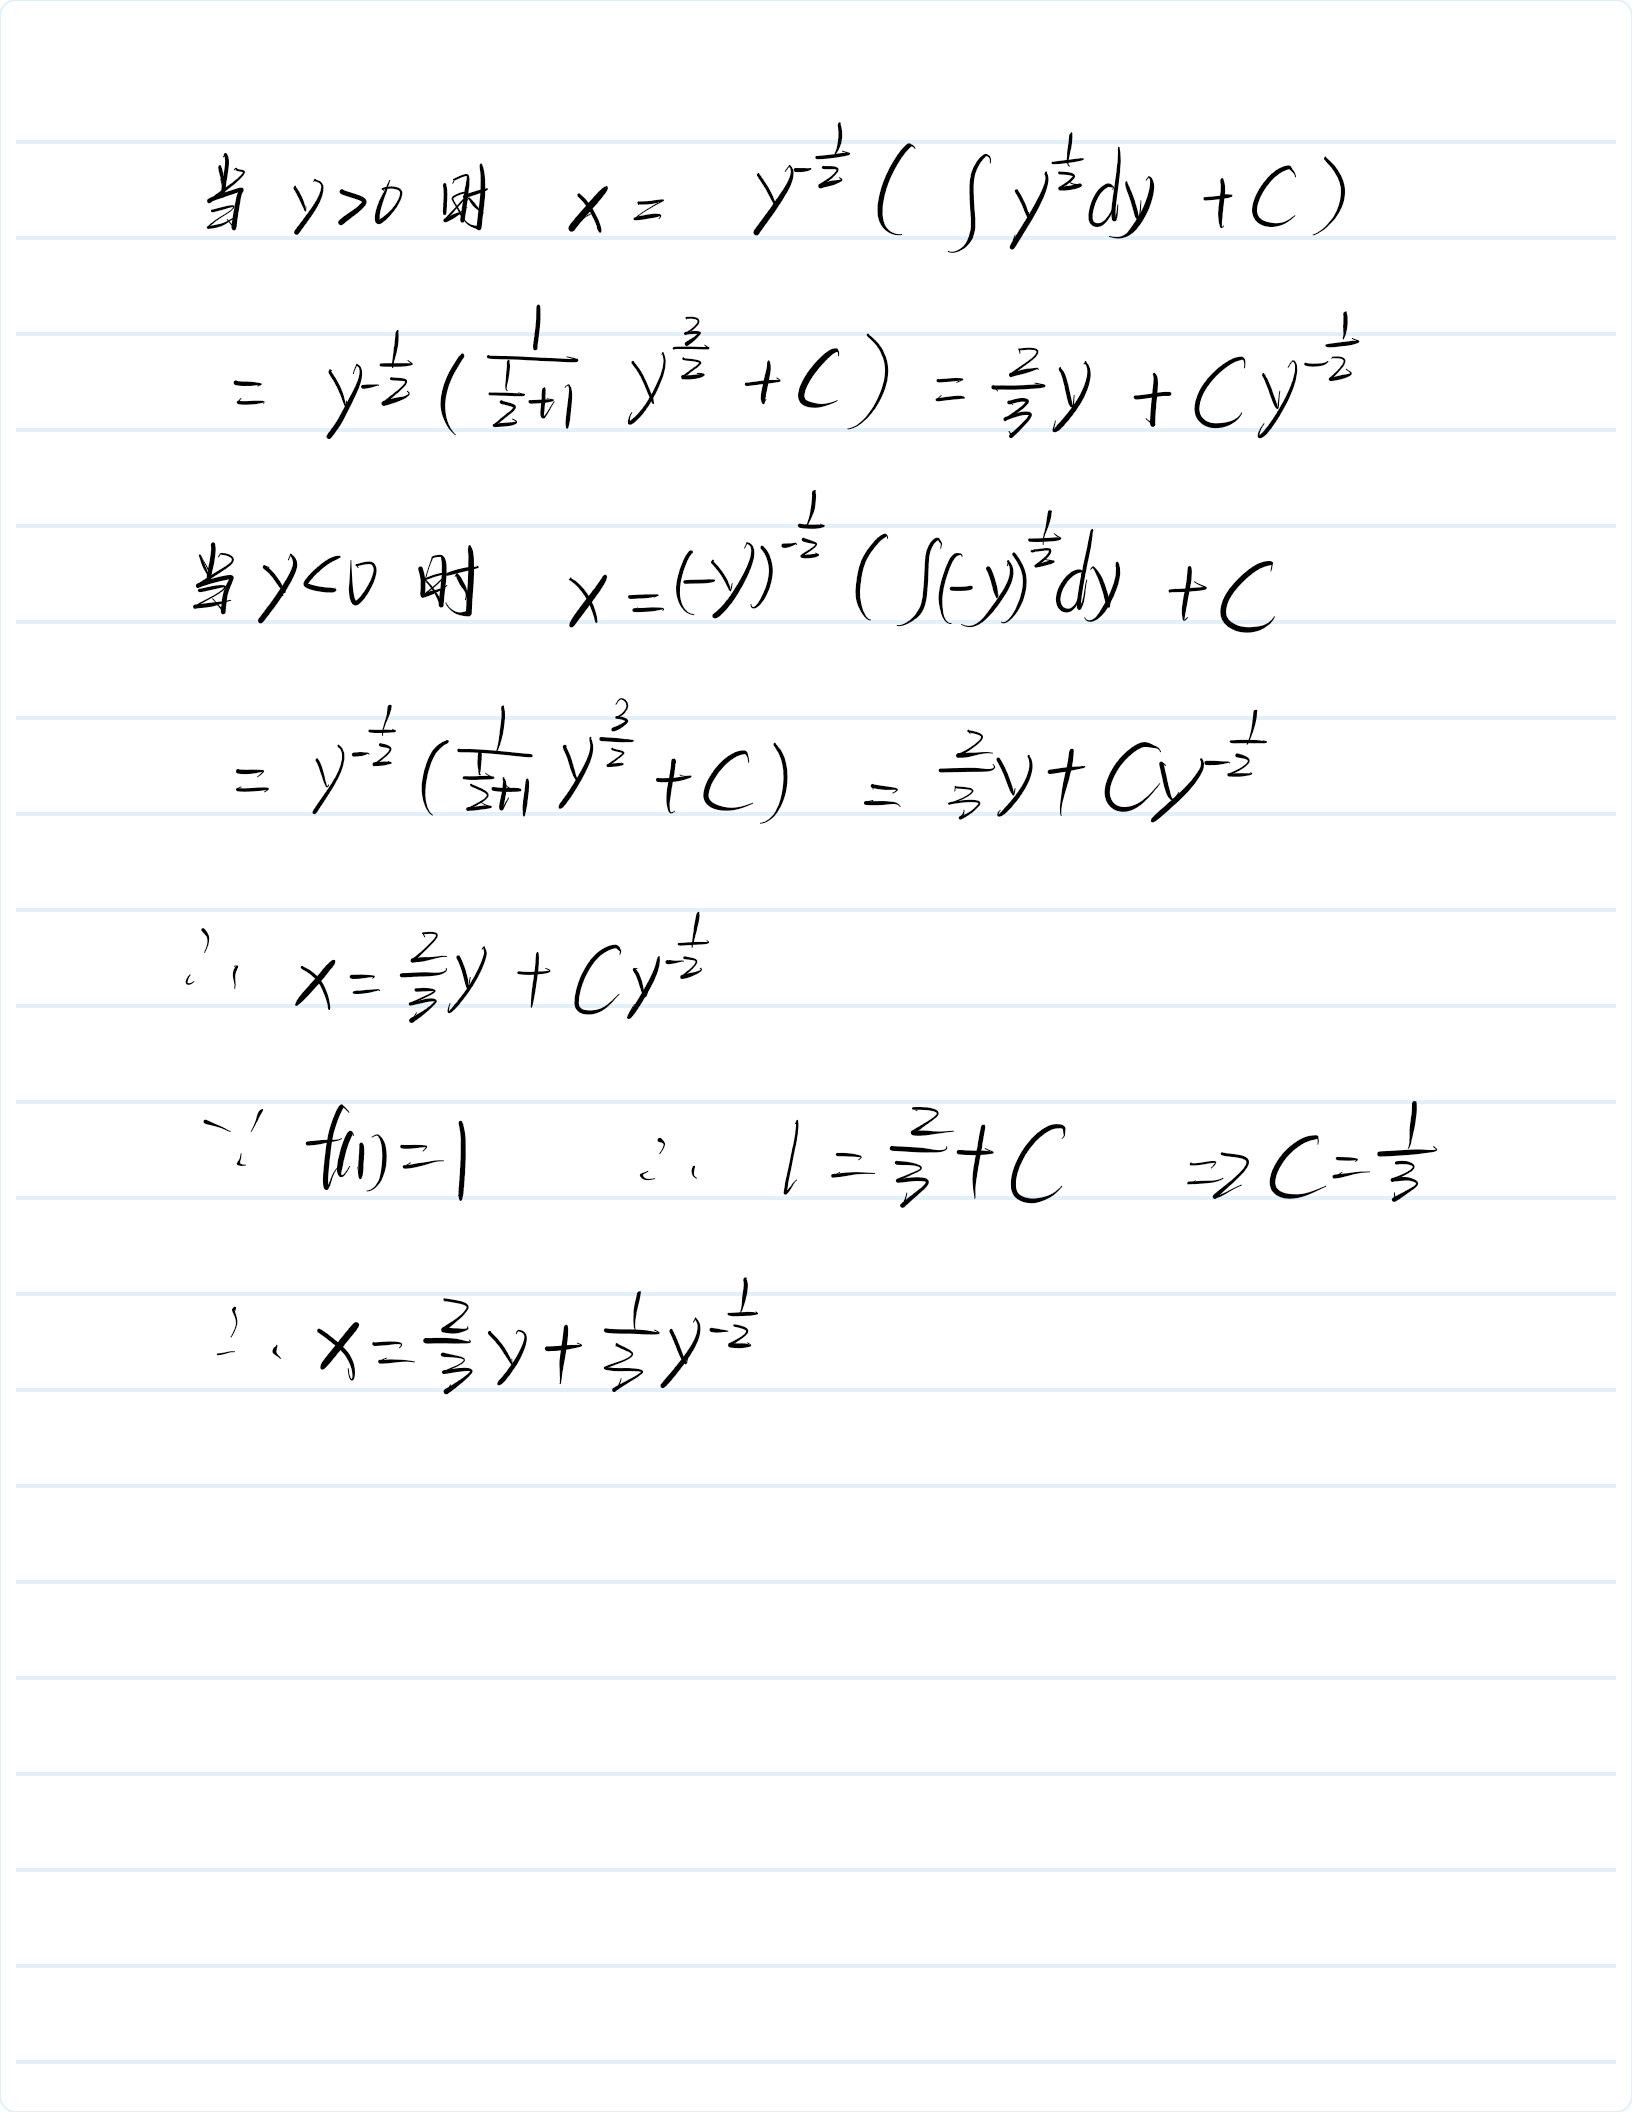 当 y>0 时 x = y^{-\frac{1}{2}} ( ∫ y^{\frac{1}{2}} dy + C )
= y^{-\frac{1}{2}} ( \frac{1}{\frac{1}{2}+1} y^{\frac{3}{2}} + C ) = \frac{2}{3} y + C y^{-\frac{1}{2}}
当 y<0 时 x = (-y)^{-\frac{1}{2}} ( ∫ (-y)^{\frac{1}{2}} dy + C
= y^{-\frac{1}{2}} ( \frac{1}{\frac{1}{2}+1} y^{\frac{3}{2}} + C ) = \frac{2}{3} y + C y^{-\frac{1}{2}}
∴ x = \frac{2}{3} y + C y^{-\frac{1}{2}}
∵ f(1) = 1 ∴ 1 = \frac{2}{3} + C => C = \frac{1}{3}
∴ x = \frac{2}{3} y + \frac{1}{3} y^{-\frac{1}{2}}